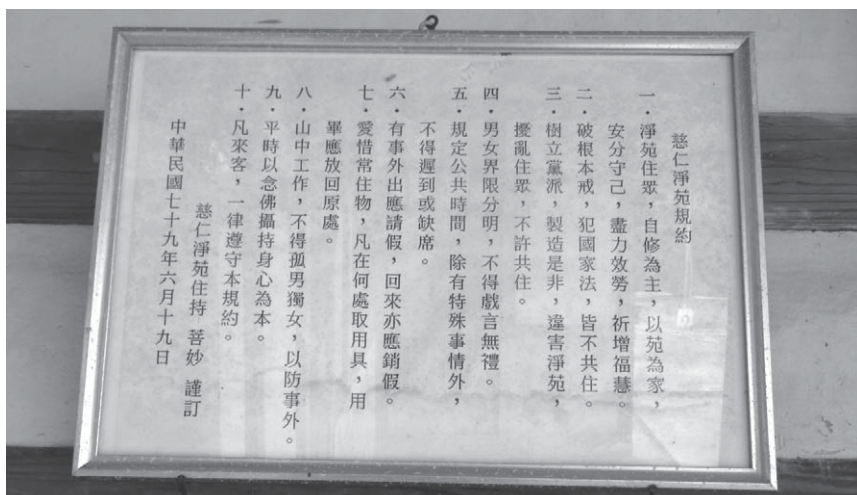 慈仁淨苑規約
一・淨苑住眾，自修為主，以苑為家，
安分守己，盡力效勞，祈增福慧。
二・破根本戒，犯國家法，皆不共住。
三・樹立黨派，製造是非，違害淨苑，
擾亂住眾，不許共住。
四・男女界限分明，不得戲言無禮。
五・規定公共時間，除有特殊事情外，
不得遲到或缺席。
六・有事外出應請假，回來亦應銷假。
七・愛惜常住物，凡在何處取用具，用
畢應放回原處。
八・山中工作，不得孤男獨女，以防事外。
九・平時以念佛攝持身心為本。
十・凡來客，一律遵守本規約。
慈仁淨苑住持 菩妙 謹訂
中華民國七十九年六月十九日